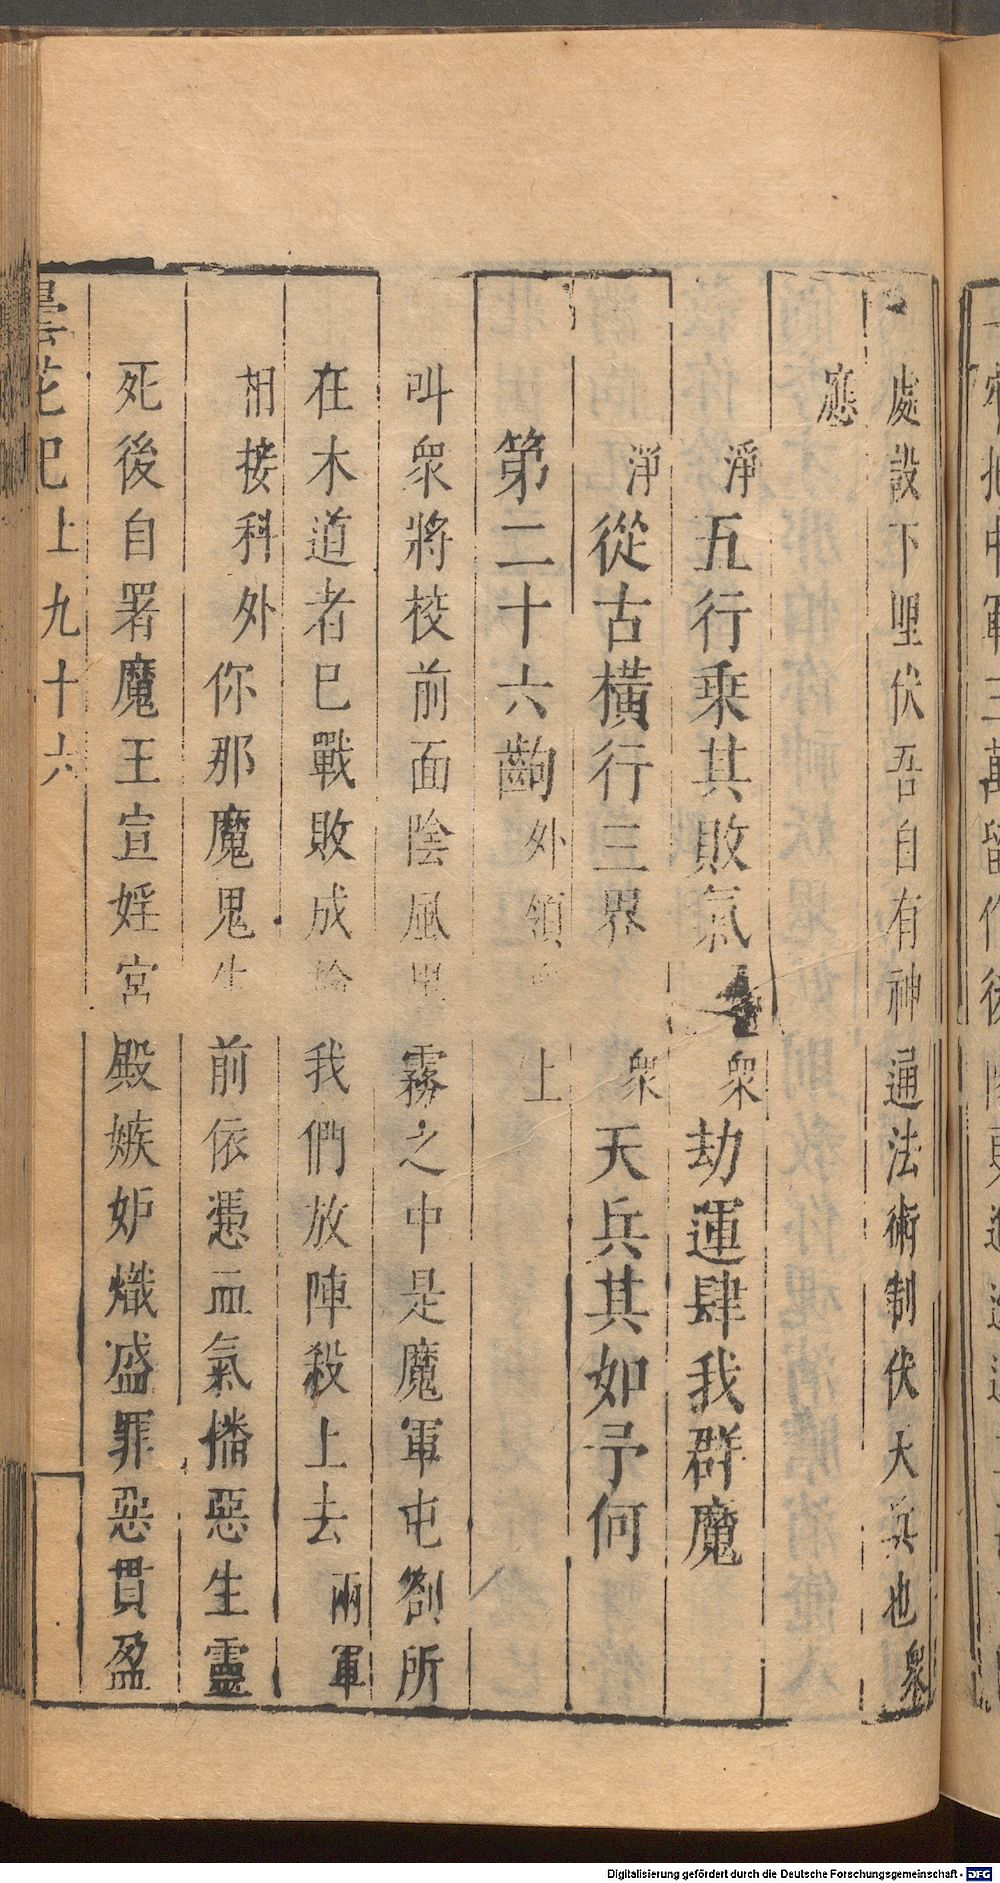 處設下埋伏吾自有神通法術制伏天兵也衆
應
淨五行乗其敗氣衆劫運肆我群魔
淨從古橫行三界衆天兵其如予何
第二十六齣外領上
叫衆將校前面陰風黑霧之中是魔軍屯劄所
在木道者已戰敗成擒我們放陣殺上去兩軍
相接科外你那魔鬼生前依憑血氣播惡生靈
死後自署魔王宣婬宮殿嫉妒熾盛罪惡貫盈
曇花記上九十六
Digitalisierung gefördert durch die Deutsche Forschungsgemeinschaft - DFG